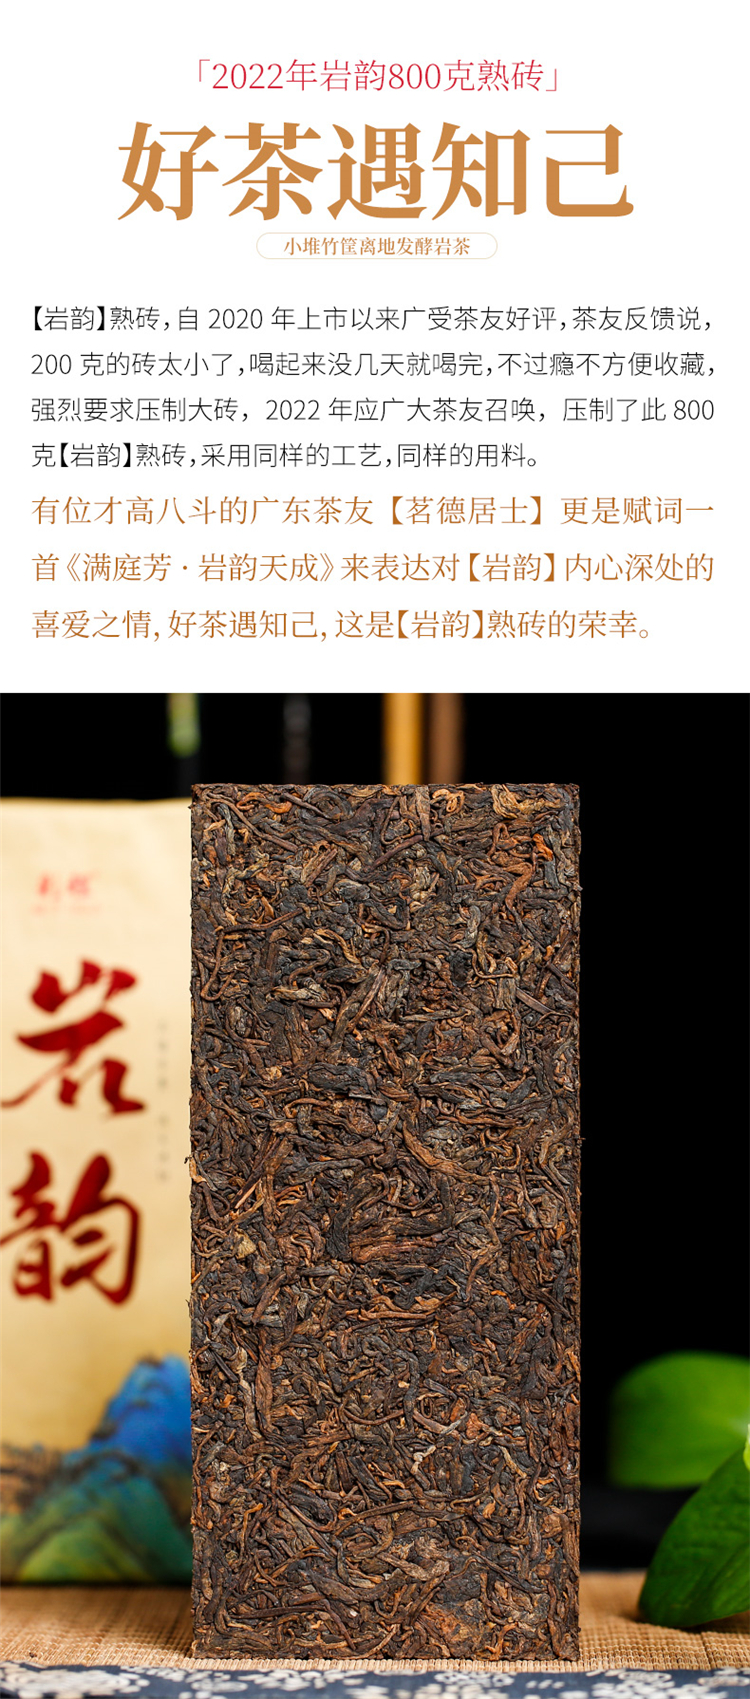 「2022年岩韵800克熟砖」
好茶遇知己
小堆竹筐离地发酵岩茶
【岩韵】熟砖，自 2020 年上市以来广受茶友好评，茶友反馈说，
200 克的砖太小了，喝起来没几天就喝完，不过瘾不方便收藏，
强烈要求压制大砖，2022 年应广大茶友召唤，压制了此 800
克【岩韵】熟砖，采用同样的工艺，同样的用料。
有位才高八斗的广东茶友【茗德居士】更是赋词一
首《满庭芳 · 岩韵天成》来表达对【岩韵】内心深处的
喜爱之情，好茶遇知己，这是【岩韵】熟砖的荣幸。
岩
韵